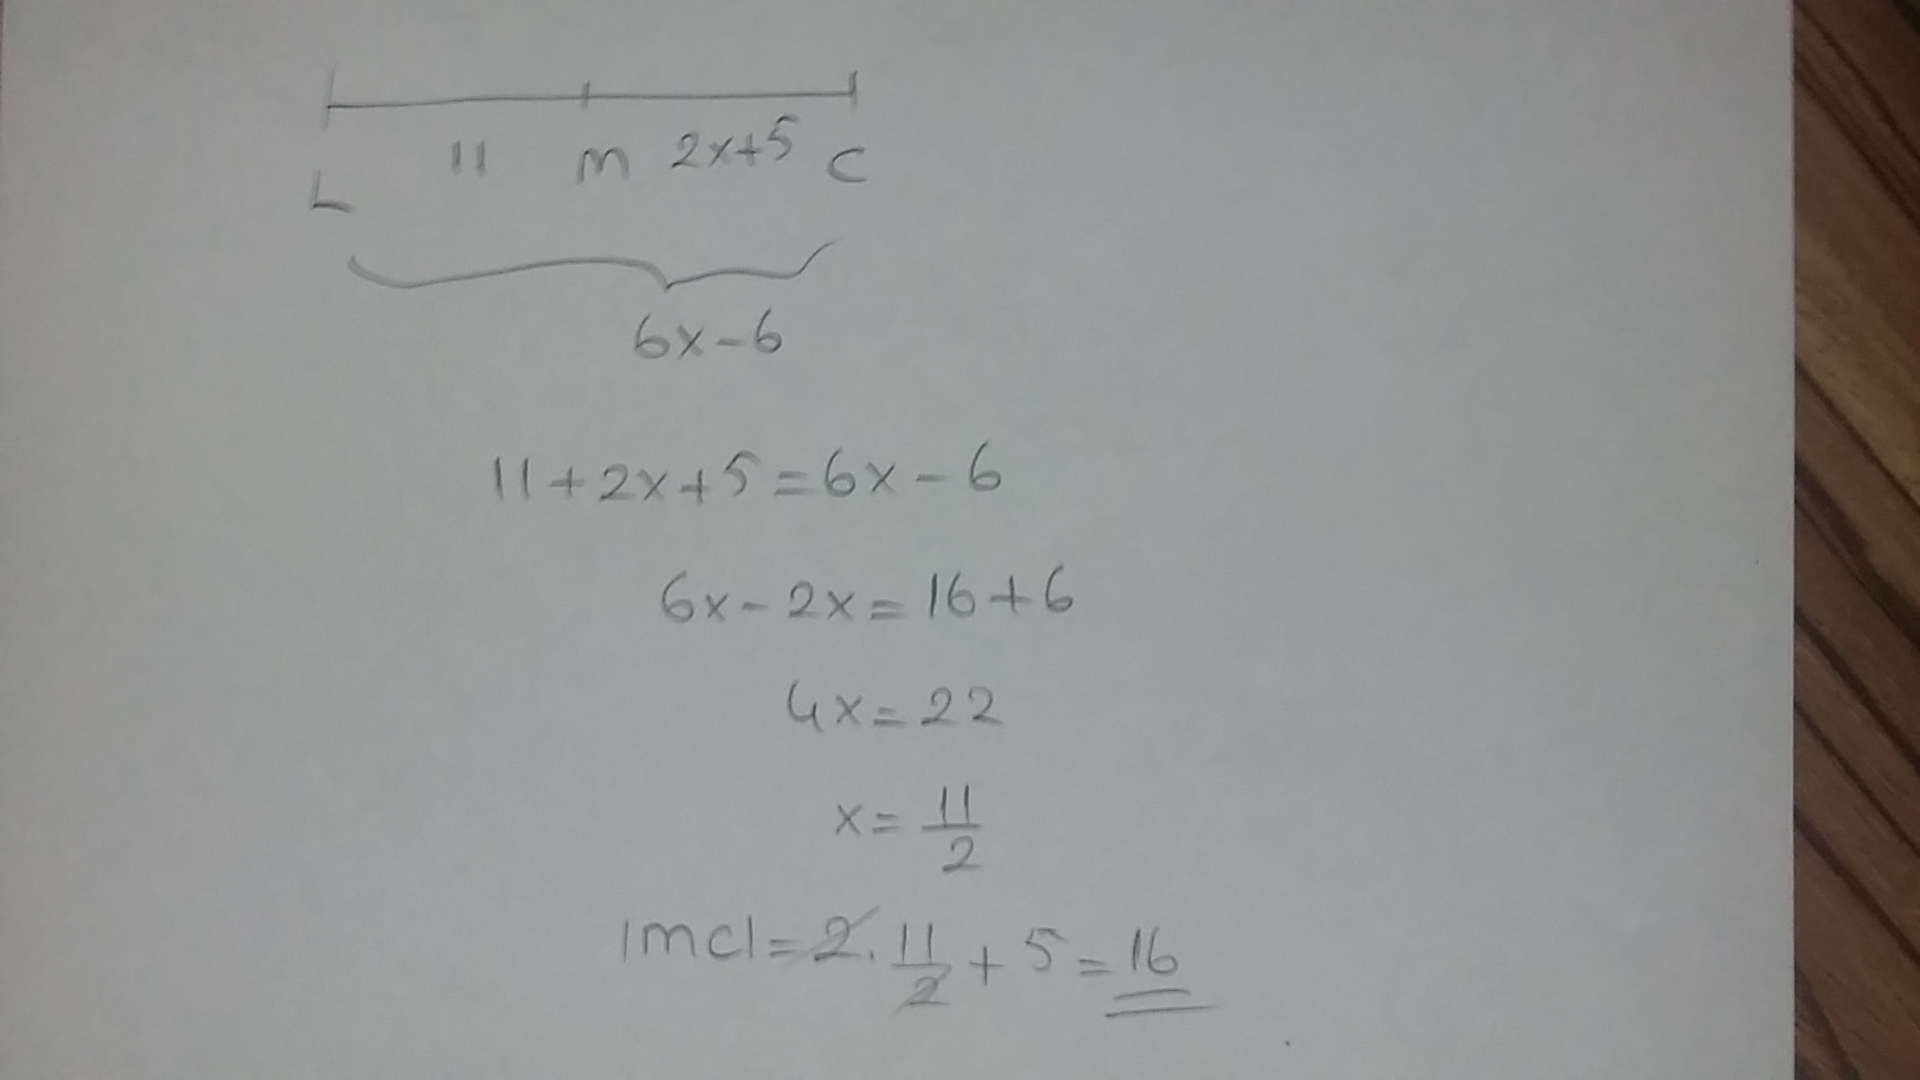 11 m 2x+5 C
L
6x-6
11+2x+5=6x-6
6x-2x=16+6
4x=22
x=11/2
|mc|=2.11/2+5=16